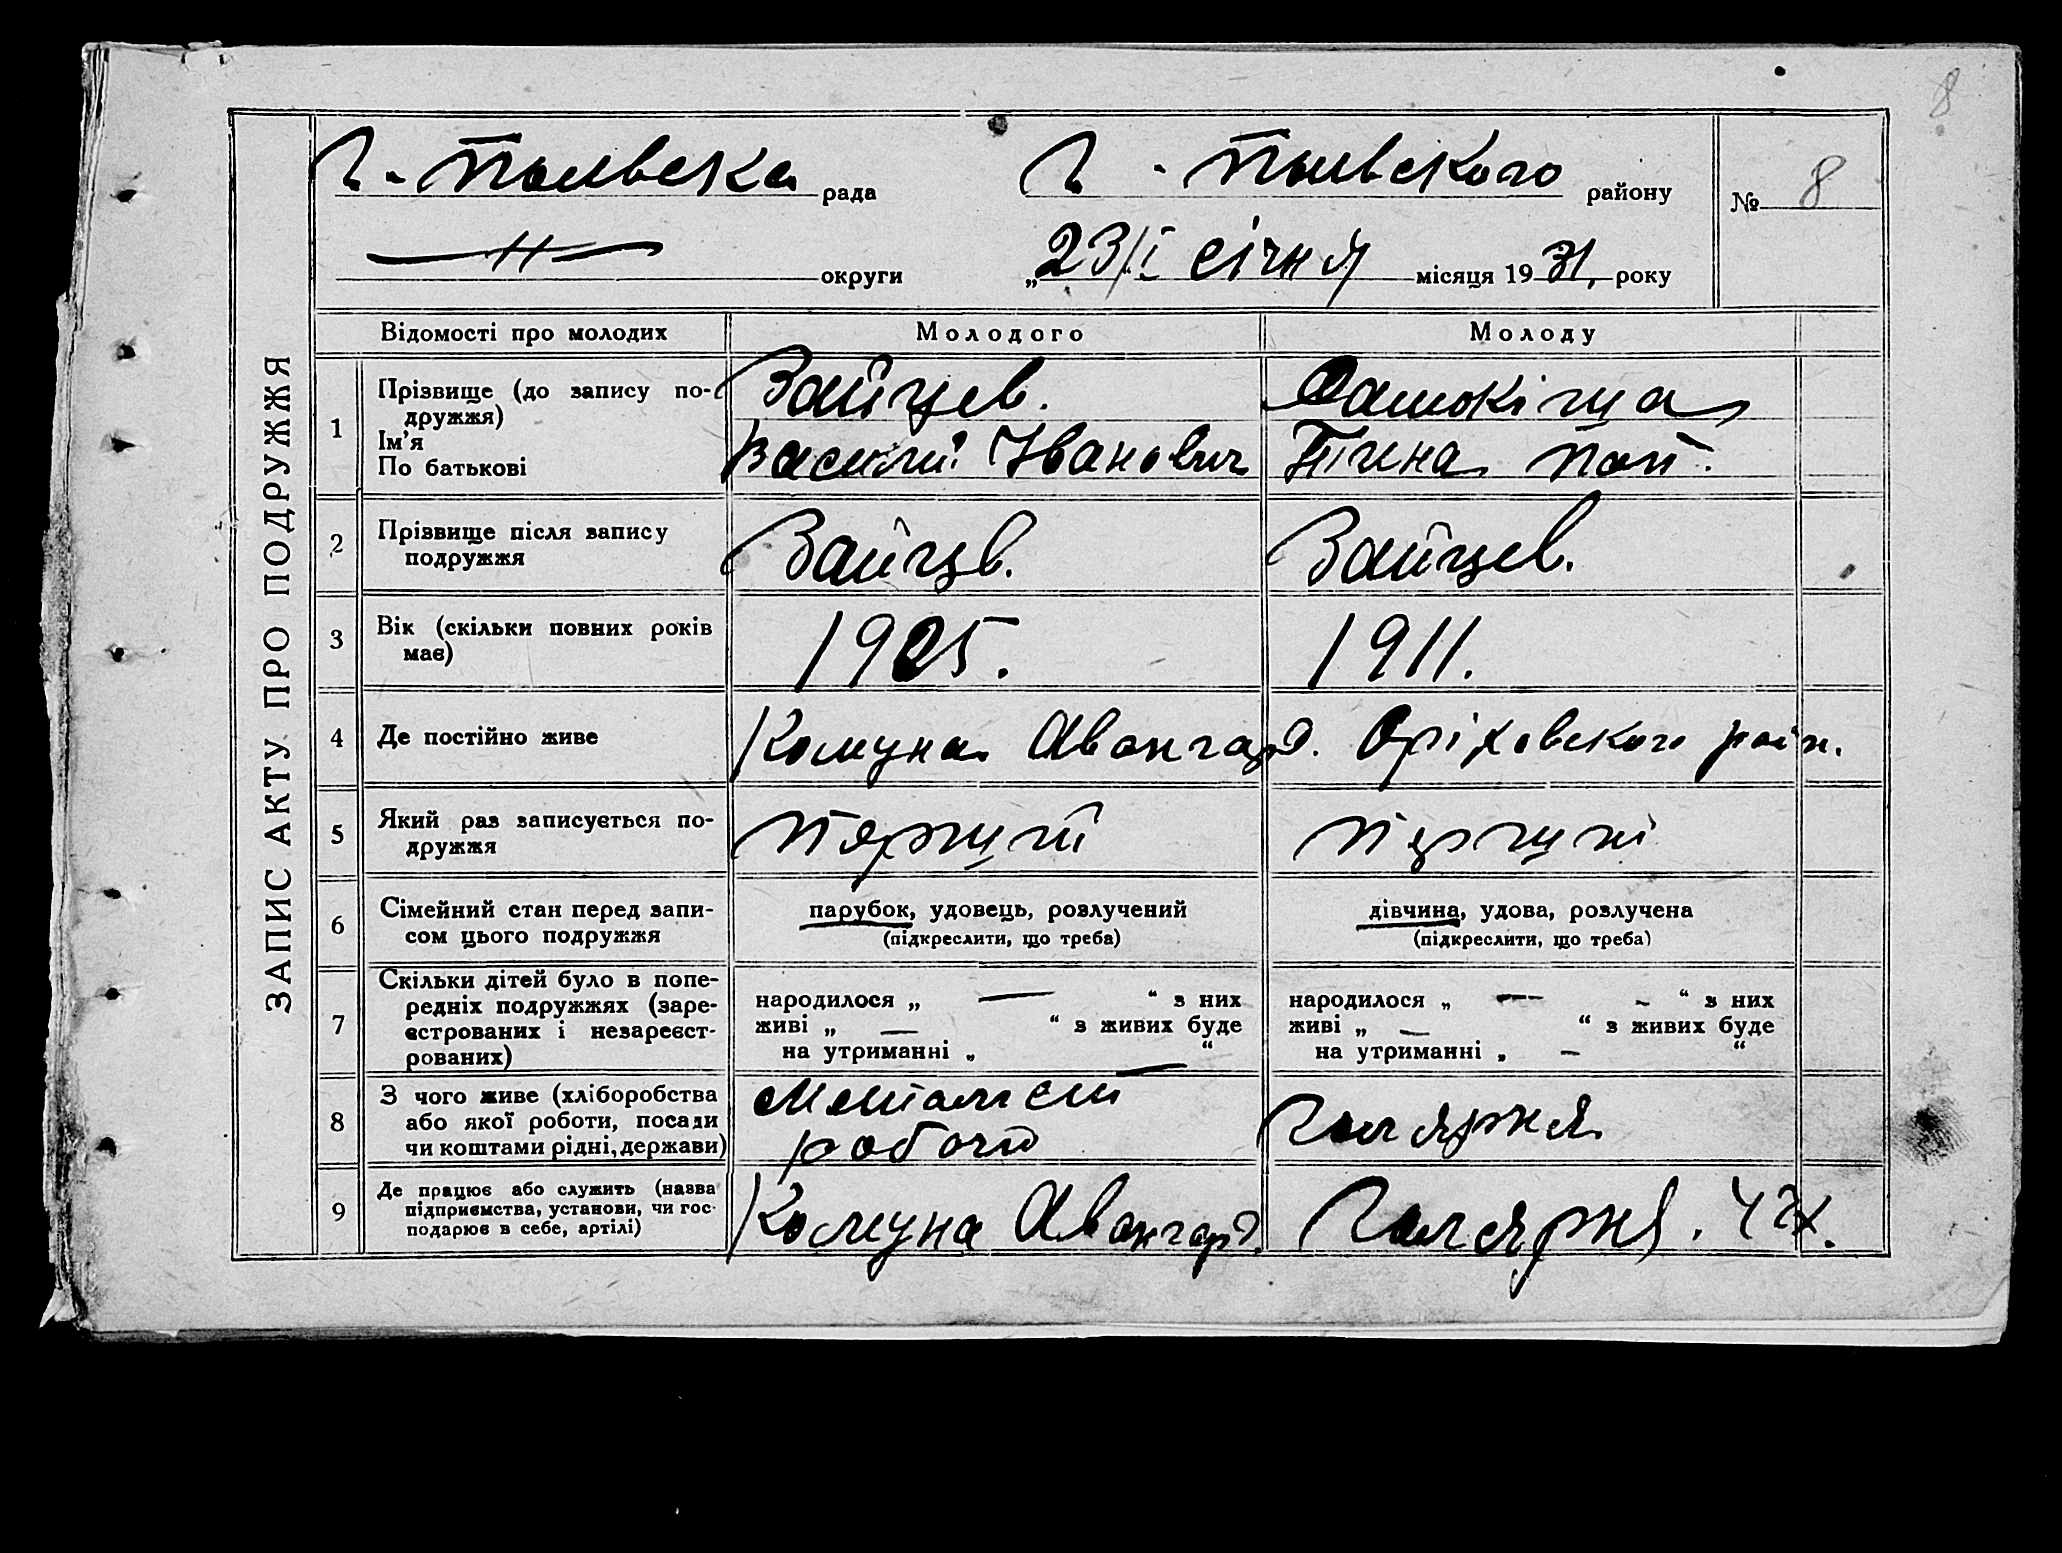 8
Г.-Польвска рада Г.-Польвского району № 8
—〃— округи „23/I січня місяця 1931, року
ЗАПИС АКТУ ПРО ПОДРУЖЖЯ
Відомості про молодих Молодого Молоду
1 Прізвище (до запису по-
дружжя)
Ім'я
По батькові
Зайцев.
Василий Иванович
2 Прізвище після запису
подружжя
Зайцв. Зайцев.
3 Вік (скільки повних років
має)
1905. 1911.
4 Де постійно живе Комуна Авангард. Оріховского район.
5 Який раз записується по-
дружжя
6 Сімейний стан перед запи-
сом цього подружжя
парубок, удовець, розлучений
(підкреслити, що треба)
дівчина, удова, розлучена
(підкреслити, що треба)
7 Скільки дітей було в попе-
редніх подружжях (заре-
єстрованих і незареєст-
рованих)
народилося „ — “ з них
живі „ — “ з живих буде
на утриманні „ — “
народилося „ — “ з них
живі „ — “ з живих буде
на утриманні „ — “
8 З чого живе (хліборобства
або якої роботи, посади
чи коштами рідні, держави)
Металіст
робочий
9 Де працює або служить (назва
підприємства, установи, чи гос-
подарює в себе, артілі)
Комуна Авангард.